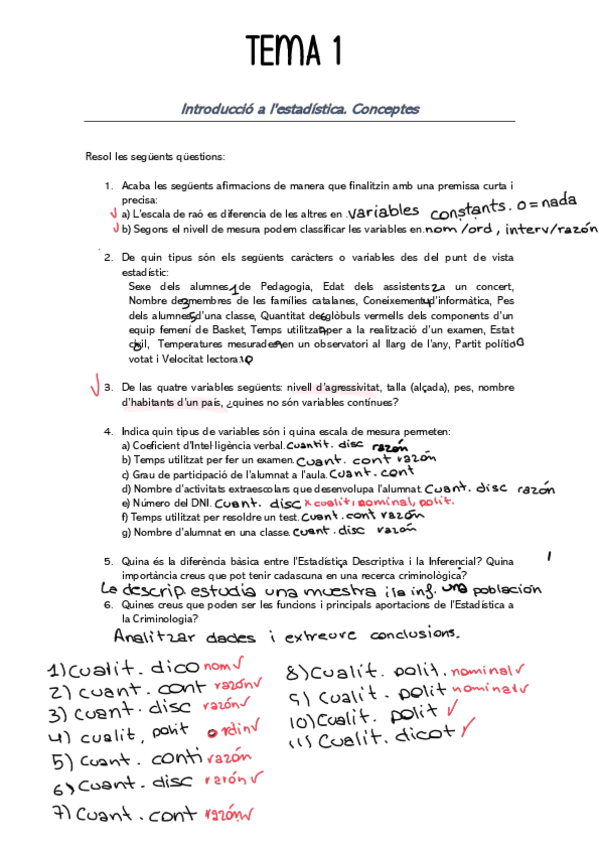 TEMA 1
Introducció a l'estadística. Conceptes
Resol les següents qüestions:
1. Acaba les següents afirmacions de manera que finalitzin amb una premissa curta i
precisa:
a) L'escala de raó es diferencia de les altres en .variables constants. 0 = nada
b) Segons el nivell de mesura podem classificar les variables en.nom/ord, interv/razón
2. De quin tipus són els següents caràcters o variables des del punt de vista
estadístic:
Sexe dels alumnes 1 de Pedagogia, Edat dels assistents 2 a un concert,
Nombre de 3 membres de les famílies catalanes, Coneixement 4 d'informàtica, Pes
dels alumnes 5 d'una classe, Quantitat de 6 glòbuls vermells dels components d'un
equip femení de Basket, Temps utilitzat 7 per a la realització d'un examen, Estat
civil, Temperatures mesurades en un observatori al llarg de l'any, Partit polític
votat i Velocitat lectora 10
3. De las quatre variables següents: nivell d'agressivitat, talla (alçada), pes, nombre
d'habitants d'un país, ¿quines no són variables contínues?
4. Indica quin tipus de variables són i quina escala de mesura permeten:
a) Coeficient d'Intel·ligència verbal. Cuantit. disc razón
b) Temps utilitzat per fer un examen. Cuant. cont razón
c) Grau de participació de l'alumnat a l'aula. Cuant. cont
d) Nombre d'activitats extraescolars que desenvolupa l'alumnat. Cuant. disc razón
e) Número del DNI. Cuant. disc x cualit, nominal, polit.
f) Temps utilitzat per resoldre un test. Cuant. cont razón
g) Nombre d'alumnat en una classe. Cuant. disc razón
5. Quina és la diferència bàsica entre l'Estadística Descriptiva i la Inferencial? Quina
importància creus que pot tenir cadascuna en una recerca criminològica?
La descrip. estudia una muestra i la inf. una población
6. Quines creus que poden ser les funcions i principals aportacions de l'Estadística a
la Criminologia?
Analitzar dades i extreure conclusions.
1) Cualit. dico nom √
2) cuant. cont razón √
3) cuant. disc razón √
4) cualit, polit ordin √
5) Cuant. conti razón
6) Cuant. disc razón √
7) Cuant. cont razón √
8) Cualit. polit. nominal √
9) Cualit. polit nominal √
10) Cualit. polit √
11) Cualit. dicot √